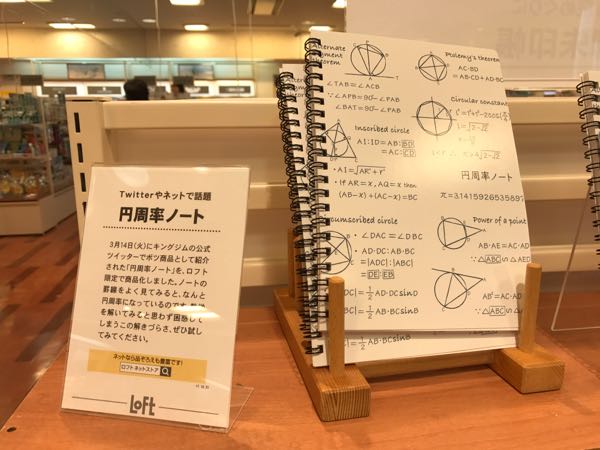 Twitterやネットで話題
円周率ノート
3月14日(火)にキングジムの公式
ツイッターでボツ商品として紹介
された「円周率ノート」を、ロフト
限定で商品化しました。ノートの
罫線をよく見てみると、なんと
円周率になっているのです。
を解いてみると思わず困惑して
しまうこの解きづらさ、ぜひ試し
てみてください。
ネットなら品ぞろえも豊富です!
ロフト ネットストア
LOFT
Alternate
segment
theorem
∠TAB=∠ACB
∵∠APB=90°-∠PAB
∠BAT=90°-∠PAB
Ptolemy's theorem
AC·BD
=AB·CD+AD·BC
Circular constant
円周率ノート
π=3.14159265358979
Inscribed circle
A1:1D=AB:BD
=AC:CD
•A1=√AR²+r²
•if AR=x, AQ=x then
(AB-x)+(AC-x)=BC
cumscribed circle
•∠DAC=∠DBC
•AD·DC:AB·BC
=|ADC|:|ABC|
=DE:EB
DC|=1/2 AD·DCsinD
BC|=1/2 AB·BCsinB
Power of a point
AB·AE=AC·AD
∵△ABC∽△AED
AB²=AC·AD
∵△ABC∽
C|=1/2 AB·BCsinB